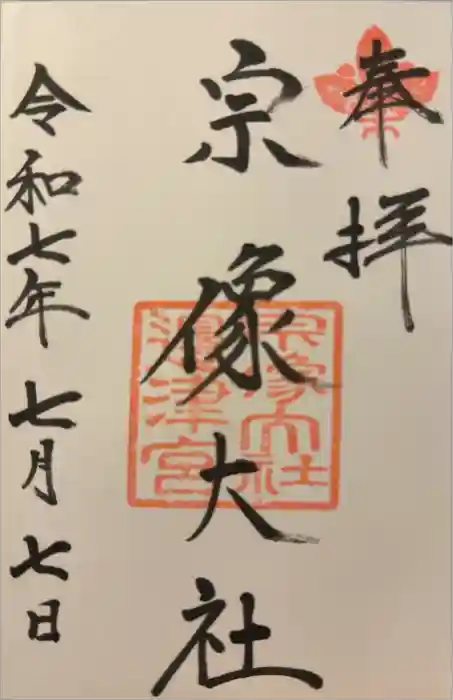 奉拝
宗像大社
宗像大社
邊津宮
令和七年七月七日